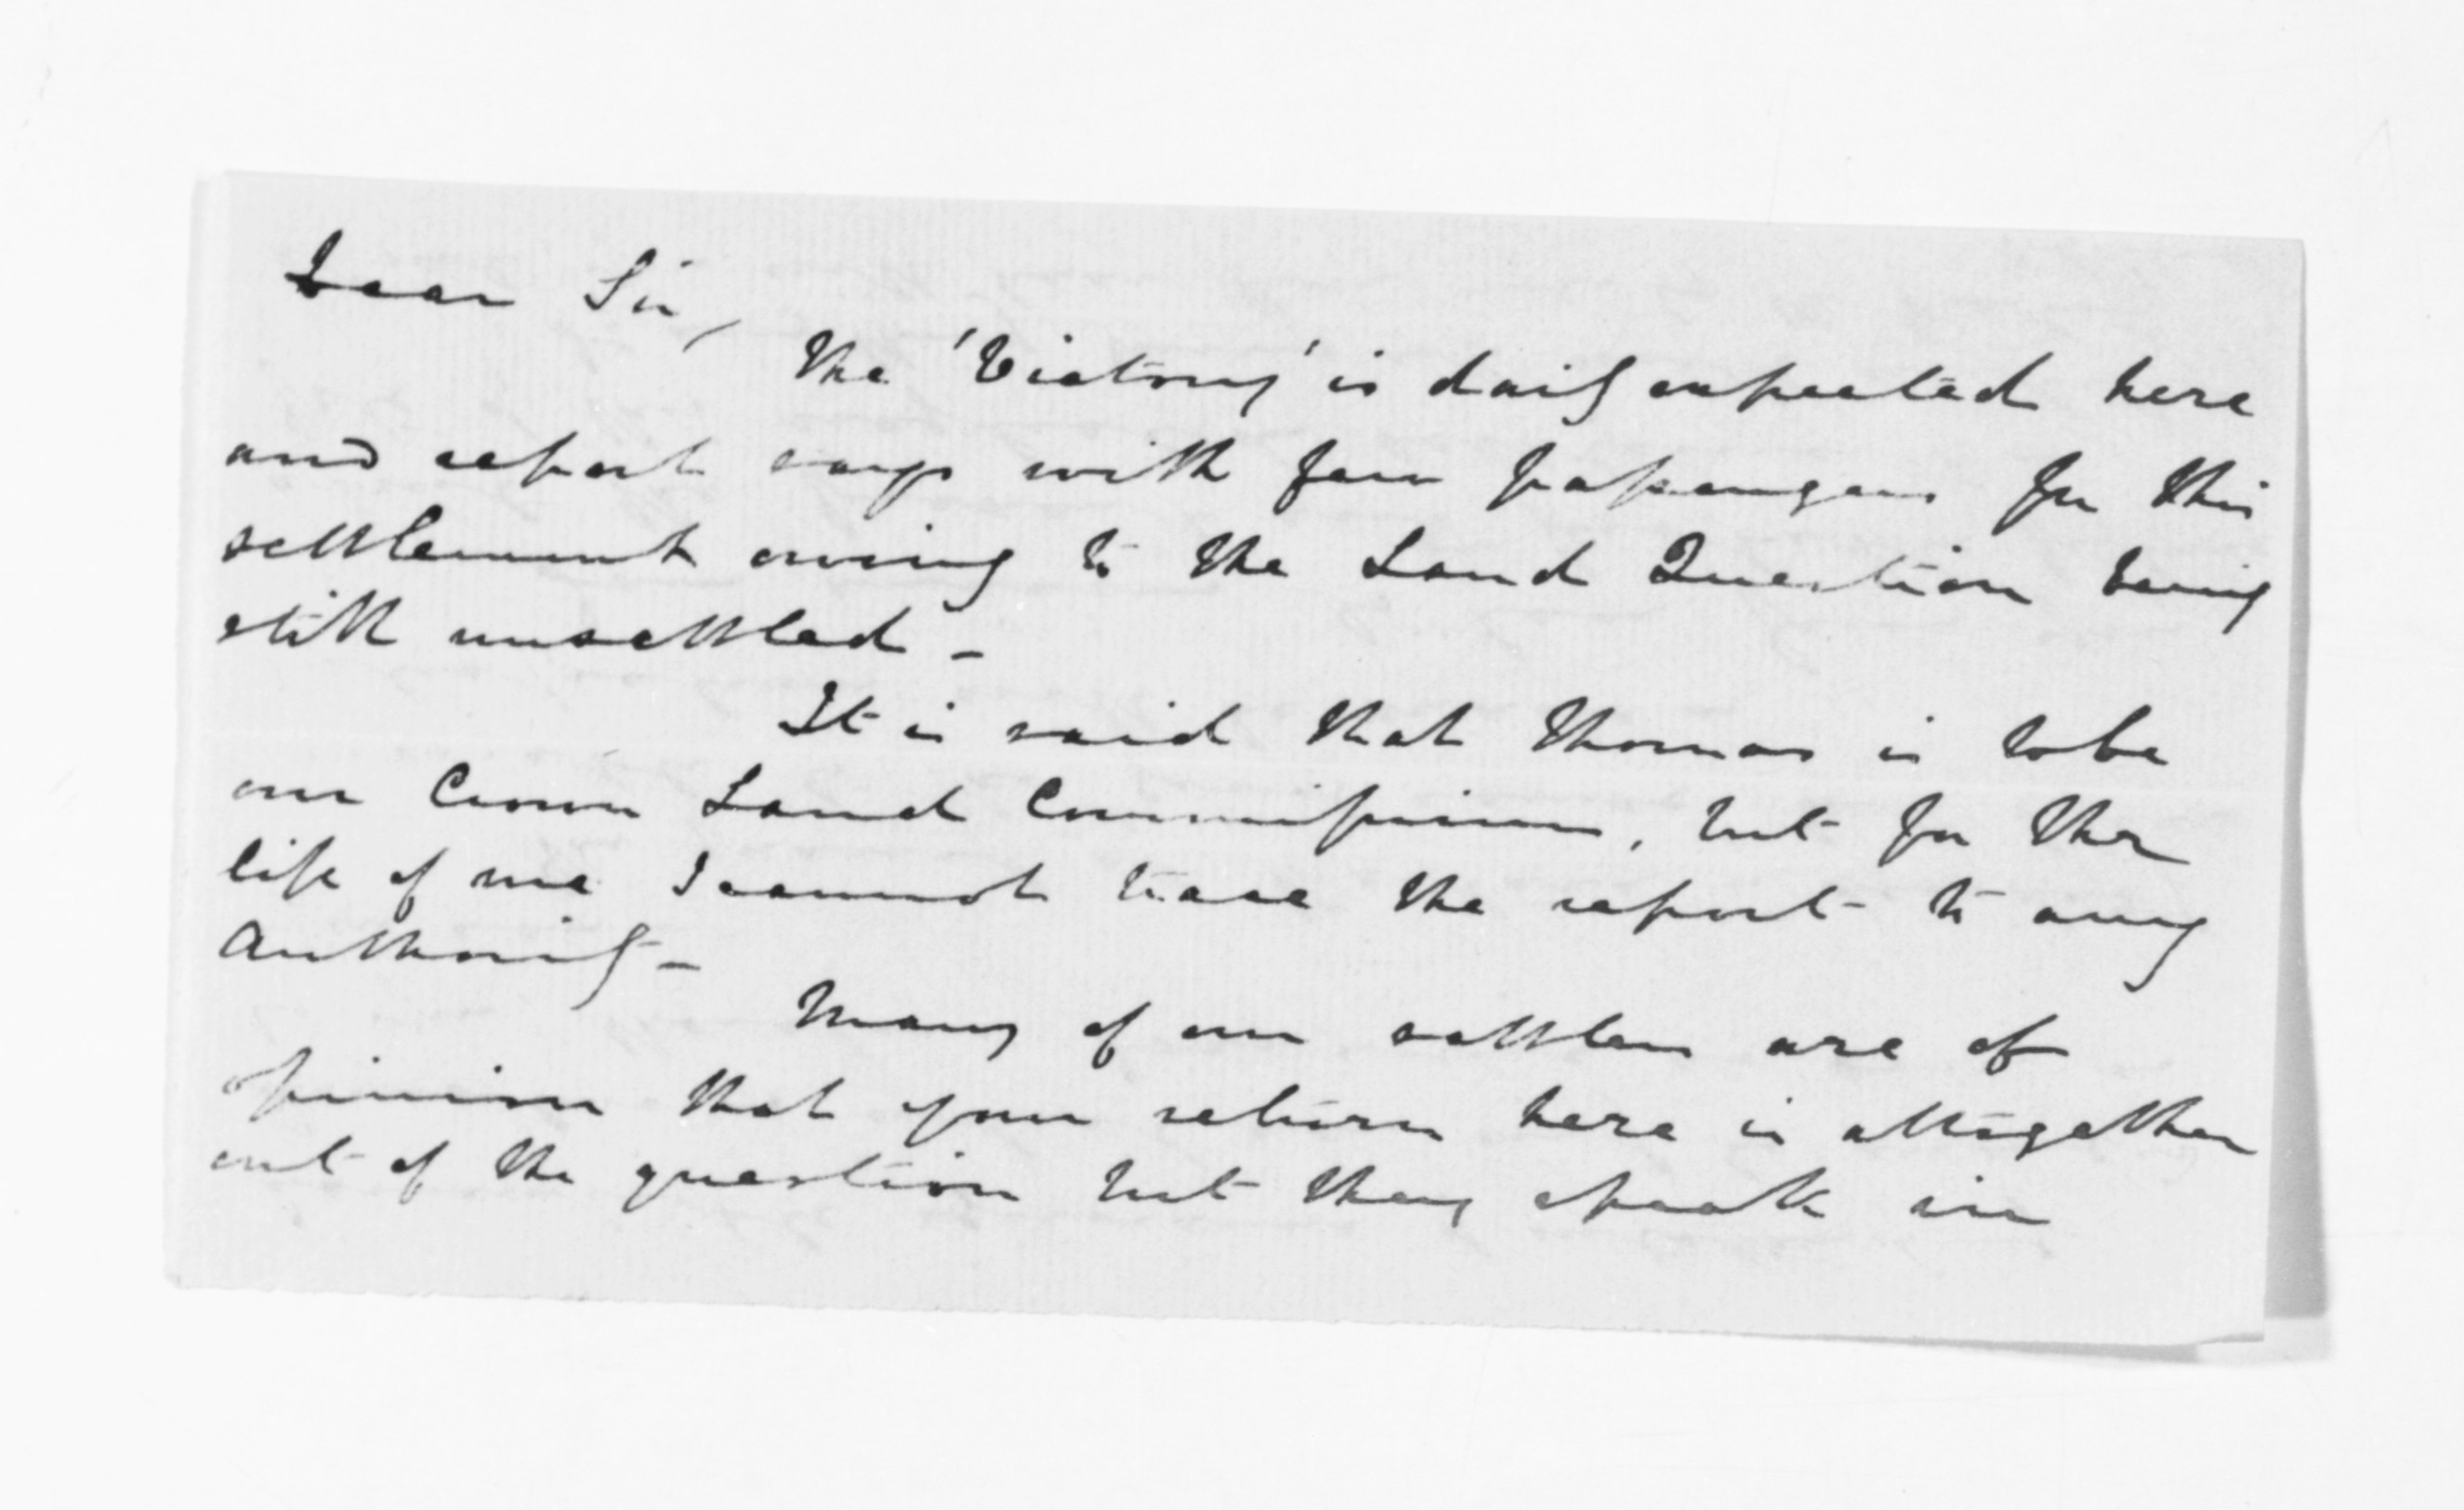 Dear Sir,
The 'Victory' is daily expected here
and report says with few passengers for this
settlement owing to the Land Question being
still unsettled -
It is said that Thomas is to be
our Crown Land Commissioner, but for the
life of me I cannot trace the report to any
Authority -
Many of our settlers are of
opinion that your return here is altogether
out of the question but they speak in